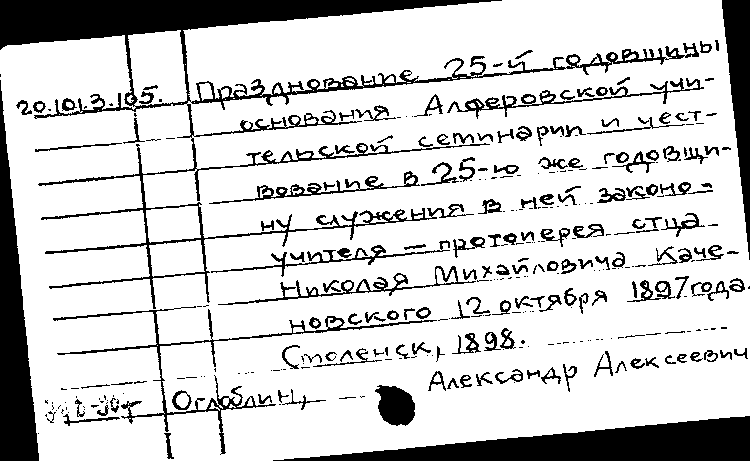 20.101.3.105. Празднование 25-й годовщины
основания Алферовской учи-
тельской семинарии и чест-
вование в 25-ю же годовщи-
ну служения в ней законо-
учителя — протоиерея отца
Николая Михайловича Каче-
новского 12 октября 1897 года.
Смоленск, 1898.
Оглоблин, Александр Алексеевич